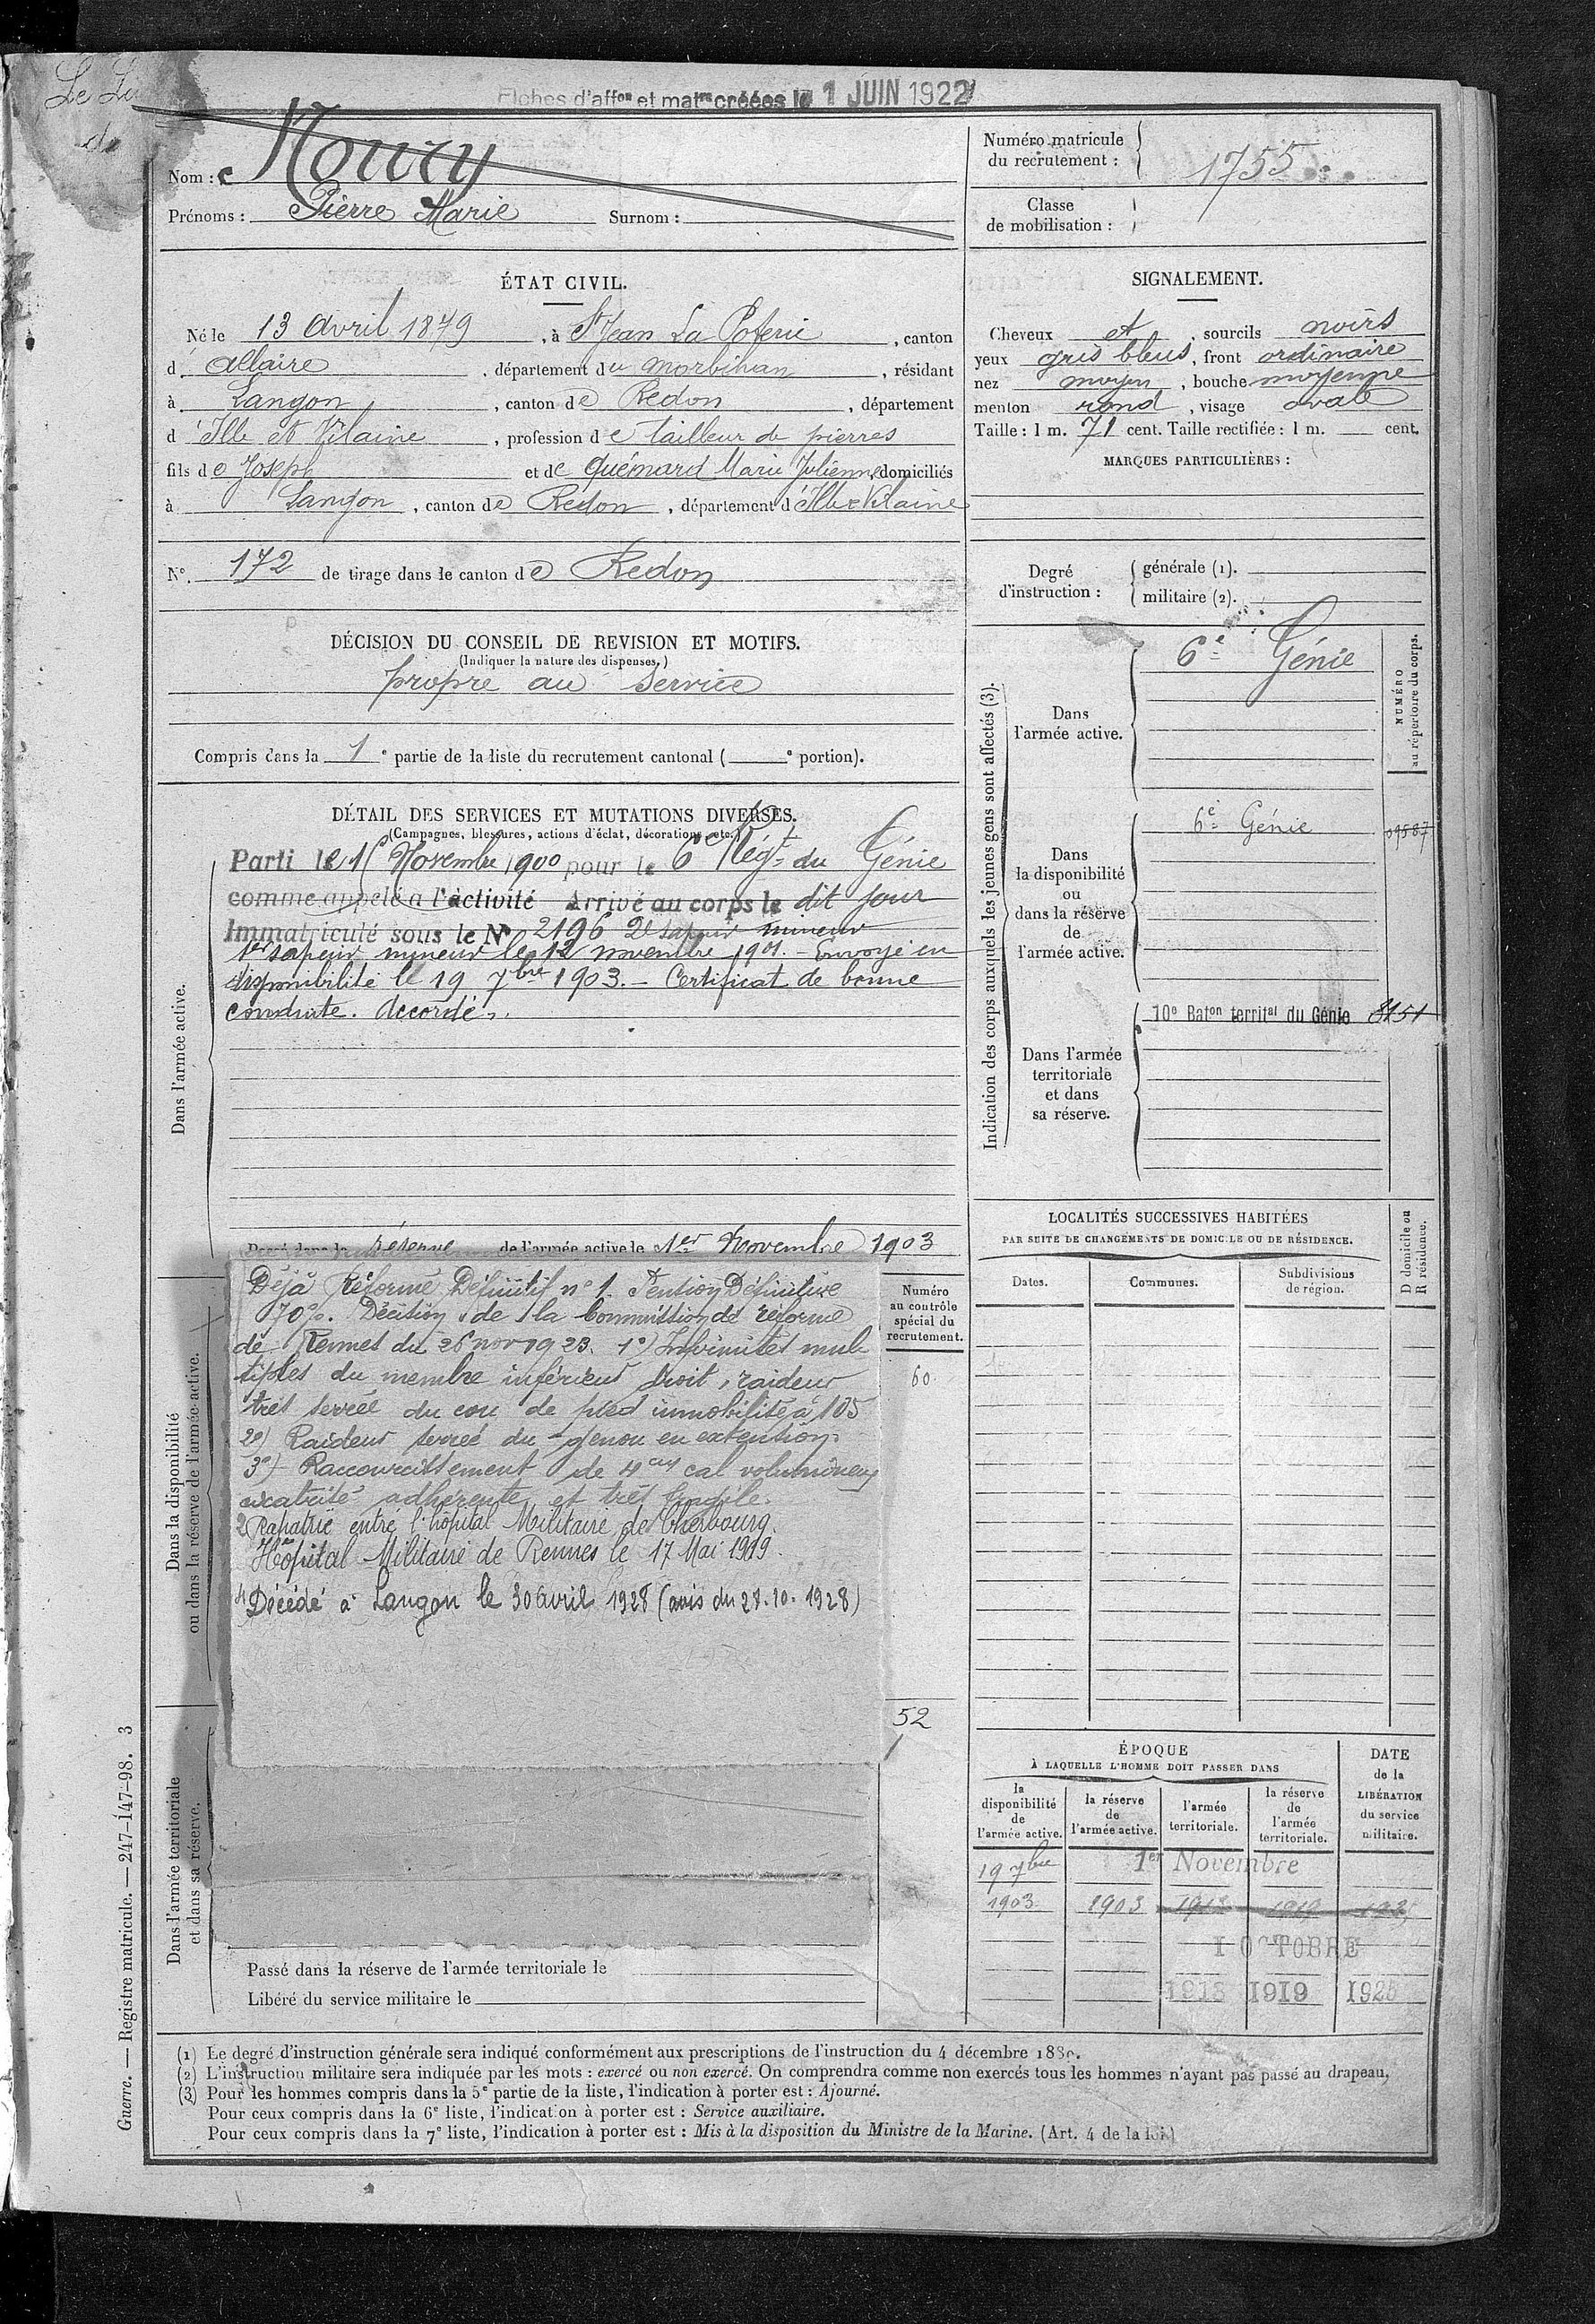 Fiches d'affon et matre créées le 1 JUIN 1922
Nom : Noury
Prénoms : Pierre Marie Surnom :
Numéro matricule du recrutement : 1755
Classe de mobilisation :
ÉTAT CIVIL.
Né le 13 Avril 1879, à St Jean La Poterie, canton
d' Allaire, département du Morbihan, résidant
à Langon, canton de Redon, département
d' Ille et Vilaine, profession de tailleur de pierres
fils de Joseph et de Guémard Marie Julienne, domiciliés
à Langon, canton de Redon, département d'Ille et Vilaine
N° 172 de tirage dans le canton de Redon
SIGNALEMENT.
Cheveux et, sourcils noirs
yeux gris bleus, front ordinaire
nez moyen, bouche moyenne
menton rond, visage ovale
Taille : 1 m. 71 cent. Taille rectifiée : 1 m. cent.
MARQUES PARTICULIÈRES :
Degré d'instruction : générale (1).
militaire (2).
DÉCISION DU CONSEIL DE REVISION ET MOTIFS.
(Indiquer la nature des dispenses.)
propre au service
Compris dans la 1e partie de la liste du recrutement cantonal ( e portion).
DÉTAIL DES SERVICES ET MUTATIONS DIVERSES.
(Campagnes, blessures, actions d'éclat, décorations, etc.)
Dans l'armée active.
Parti le 15 Novembre 1900 pour le 6e Régt du Génie
comme appelé a l'activité Arrivé au corps le dit jour
Immatriculé sous le N° 2196 2e sapeur mineur
1er sapeur mineur le 12 novembre 1901. - Envoyé en
disponibilité le 19 7bre 1903. - Certificat de bonne
conduite. Accordé.
Passé dans la réserve de l'armée active le 1er Novembre 1903
Dans la disponibilité
ou dans la réserve de l'armée active.
Déjà Réformé Définitif n° 1. Pension Définitive
70%. Décision de la Commission de réforme
de Rennes du 26 nov 1923. 1°) Infirmités mul
tiples du membre inférieur droit, raideur
très serrée du cou de pied immobilité à 105
2°) Raideur serrée du genou en extension
3°) Raccourcissement de 4 cm cal volumineux
cicatrice adhérente et très fragile.
Rapatrié entré l'hôpital Militaire de Cherbourg.
Hôpital Militaire de Rennes le 17 Mai 1919.
Décédé à Langon le 30 avril 1928 (avis du 28.10.1928)
Numéro
au contrôle
spécial du
recrutement.
60
52
Dans l'armée territoriale
et dans sa réserve.
Passé dans la réserve de l'armée territoriale le
Libéré du service militaire le
Indication des corps auxquels les jeunes gens sont affectés (3).
NUMÉRO
au répertoire du corps.
Dans
l'armée active.
6e Génie
Dans
la disponibilité
ou
dans la réserve
de
l'armée active.
6e Génie
Dans l'armée
territoriale
et dans
sa réserve.
10e Baton territal du Génie 8151
LOCALITÉS SUCCESSIVES HABITÉES
PAR SUITE DE CHANGEMENTS DE DOMICILE OU DE RÉSIDENCE.
Dates. Communes. Subdivisions de région.
D domicile ou
R résidence.
ÉPOQUE
À LAQUELLE L'HOMME DOIT PASSER DANS
la disponibilité de l'armée active.
la réserve de l'armée active.
l'armée territoriale.
la réserve de l'armée territoriale.
DATE de la LIBÉRATION du service militaire.
19 7bre 1er Novembre
1903 1903 1913 1919 1925
1 OCTOBRE
1913 1919 1925
(1) Le degré d'instruction générale sera indiqué conformément aux prescriptions de l'instruction du 4 décembre
(2) L'instruction militaire sera indiquée par les mots : exercé ou non exercé. On comprendra comme non exercés tous les hommes n'ayant pas passé au drapeau.
(3) Pour les hommes compris dans la 5e partie de la liste, l'indication à porter est : Ajourné.
Pour ceux compris dans la 6e liste, l'indication à porter est : Service auxiliaire.
Pour ceux compris dans la 7e liste, l'indication à porter est : Mis à la disposition du Ministre de la Marine. (Art. 4 de la loi.)
Guerre. — Registre matricule. — 247-147-98. 3